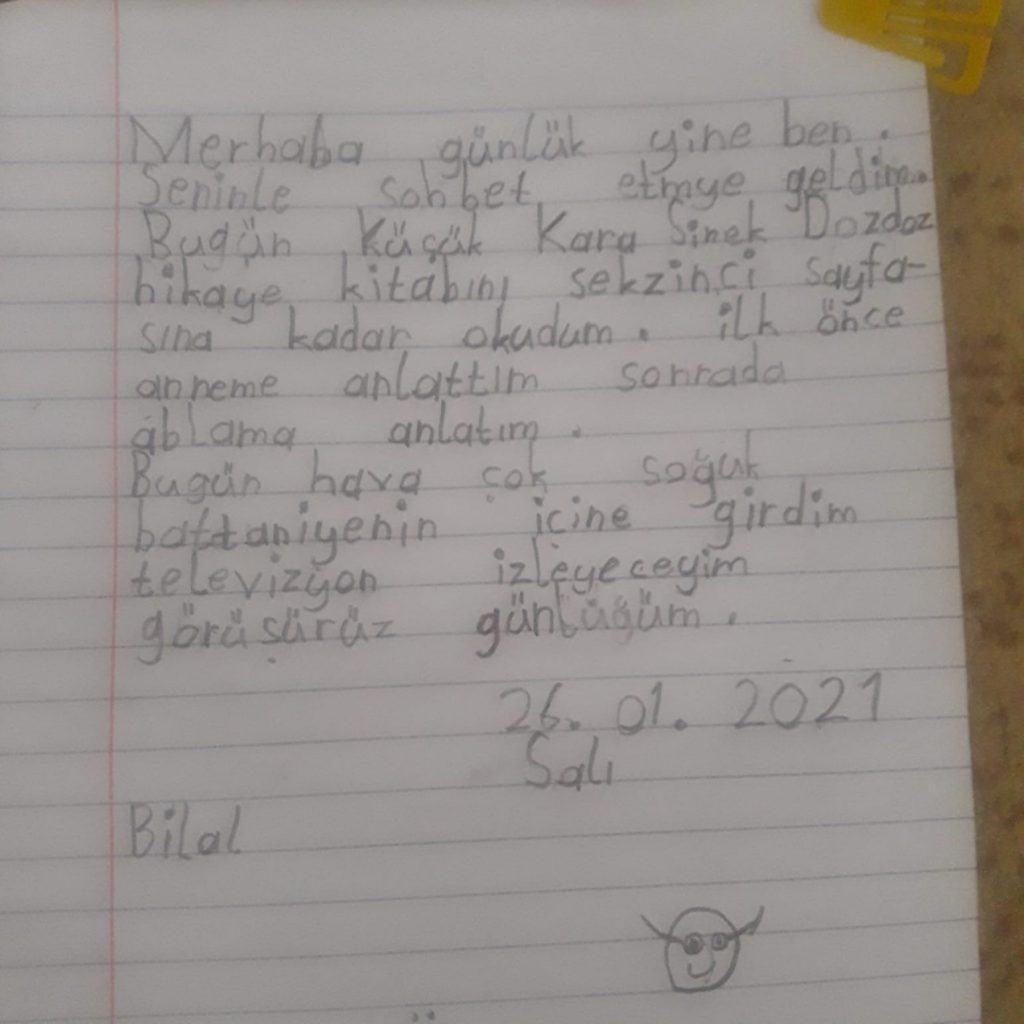 Merhaba günlük yine ben.
Seninle sohbet etmye geldim.
Bugün Küçük Kara Sinek Dozdoz
hikaye kitabını sekzinci sayfa-
sına kadar okudum. ilk önce
anneme anlattım sonrada
ablama anlatım.
Bugün hava çok soğuk
battaniyenin içine girdim
televizyon izleyeceyim
görüşürüz günlüğüm.
26.01.2021
Salı
Bilal